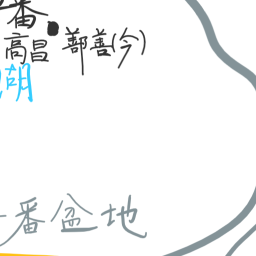 番
高昌 鄯善(今)
湖
番盆地